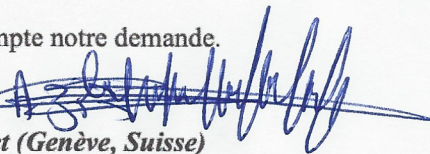 mpte notre demande.
et (Genève, Suisse)